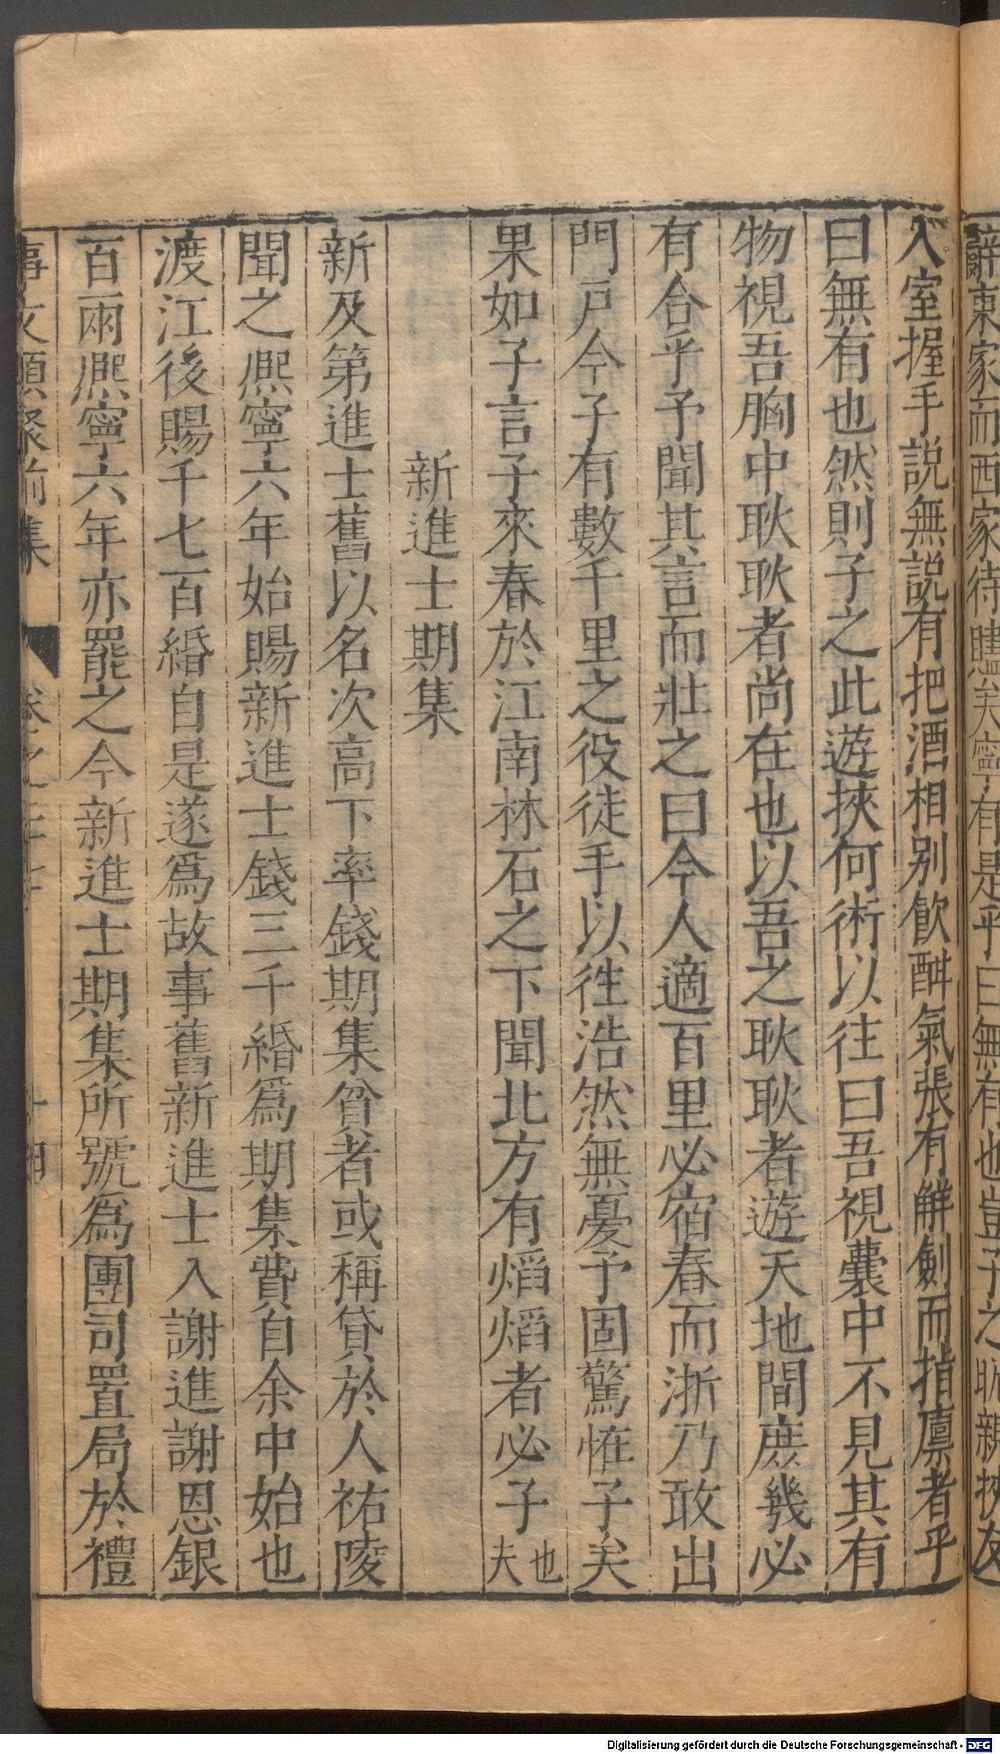 辭東家而西家待 夫寧有是乎曰無有也豈子之 親挾友
入室握手説無説有把酒相别飮酣氣張有解劍而指廪者乎
曰無有也然則子之此遊挾何術以往曰吾視囊中不見其有
物視吾胸中耿耿者尚在也以吾之耿耿者遊天地間庶幾必
有合乎予聞其言而壯之曰今人適百里必宿舂而浙乃敢出
門戸今子有數千里之役徒手以徃浩然無憂予固驚惟子矣
果如子言子來春於江南林石之下聞北方有熖熖者必子也夫
新進士期集
新及第進士舊以名次高下率錢期集貧者或稱貸於人祐陵
聞之熈寧六年始賜新進士錢三千緡爲期集費自余中始也
渡江後賜千七百緡自是遂爲故事舊新進士入謝進謝恩銀
百兩熈寧六年亦罷之今新進士期集所號爲團司置局於禮
事文類聚前集
Digitalisierung gefördert durch die Deutsche Forschungsgemeinschaft - DFG